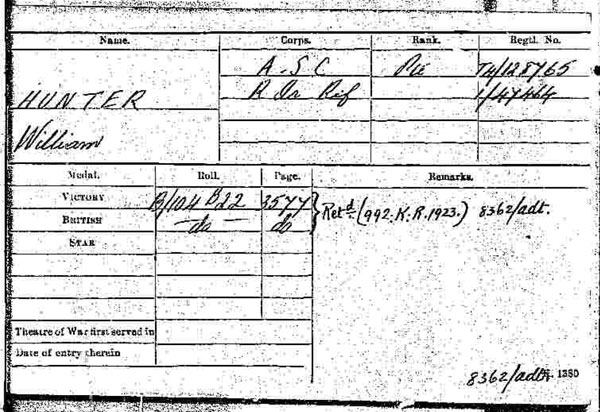 Name. Corps. Rank. Regtl. No.
A.S.C Pte T4/128765
HUNTER R Ir Rif 1/47464
William
Medal. Roll. Page. Remarks.
VICTORY B/104 B22 3577 Retd. (992.K.R.1923.) 8362/adt.
BRITISH do do
STAR
Theatre of War first served in
Date of entry therein
8362/adt. K. 1380